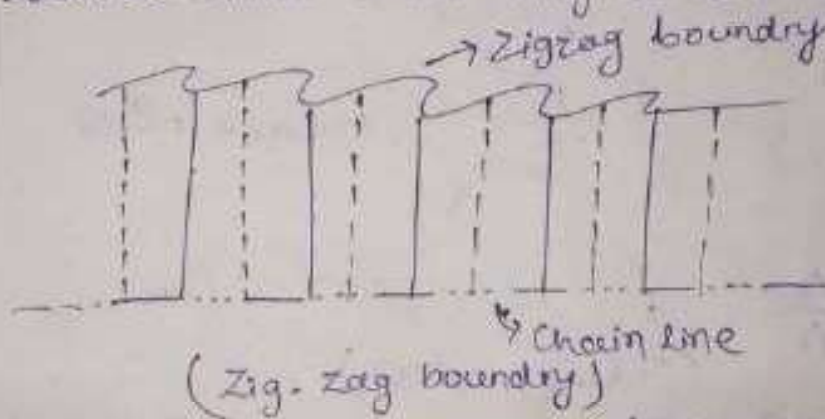 Zigzag boundry
Chain line
(Zig-zag boundry)